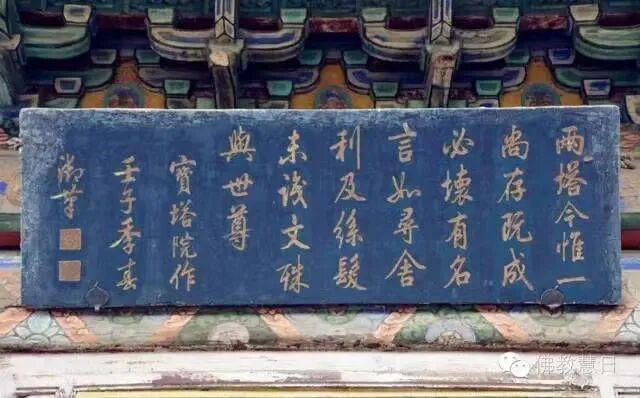 兩塔今惟一
尚存既成
必壞有名
言如尋舍
利及絲髮
未識文殊
與世尊
寶塔院作
壬子季春
御筆
佛教慧日